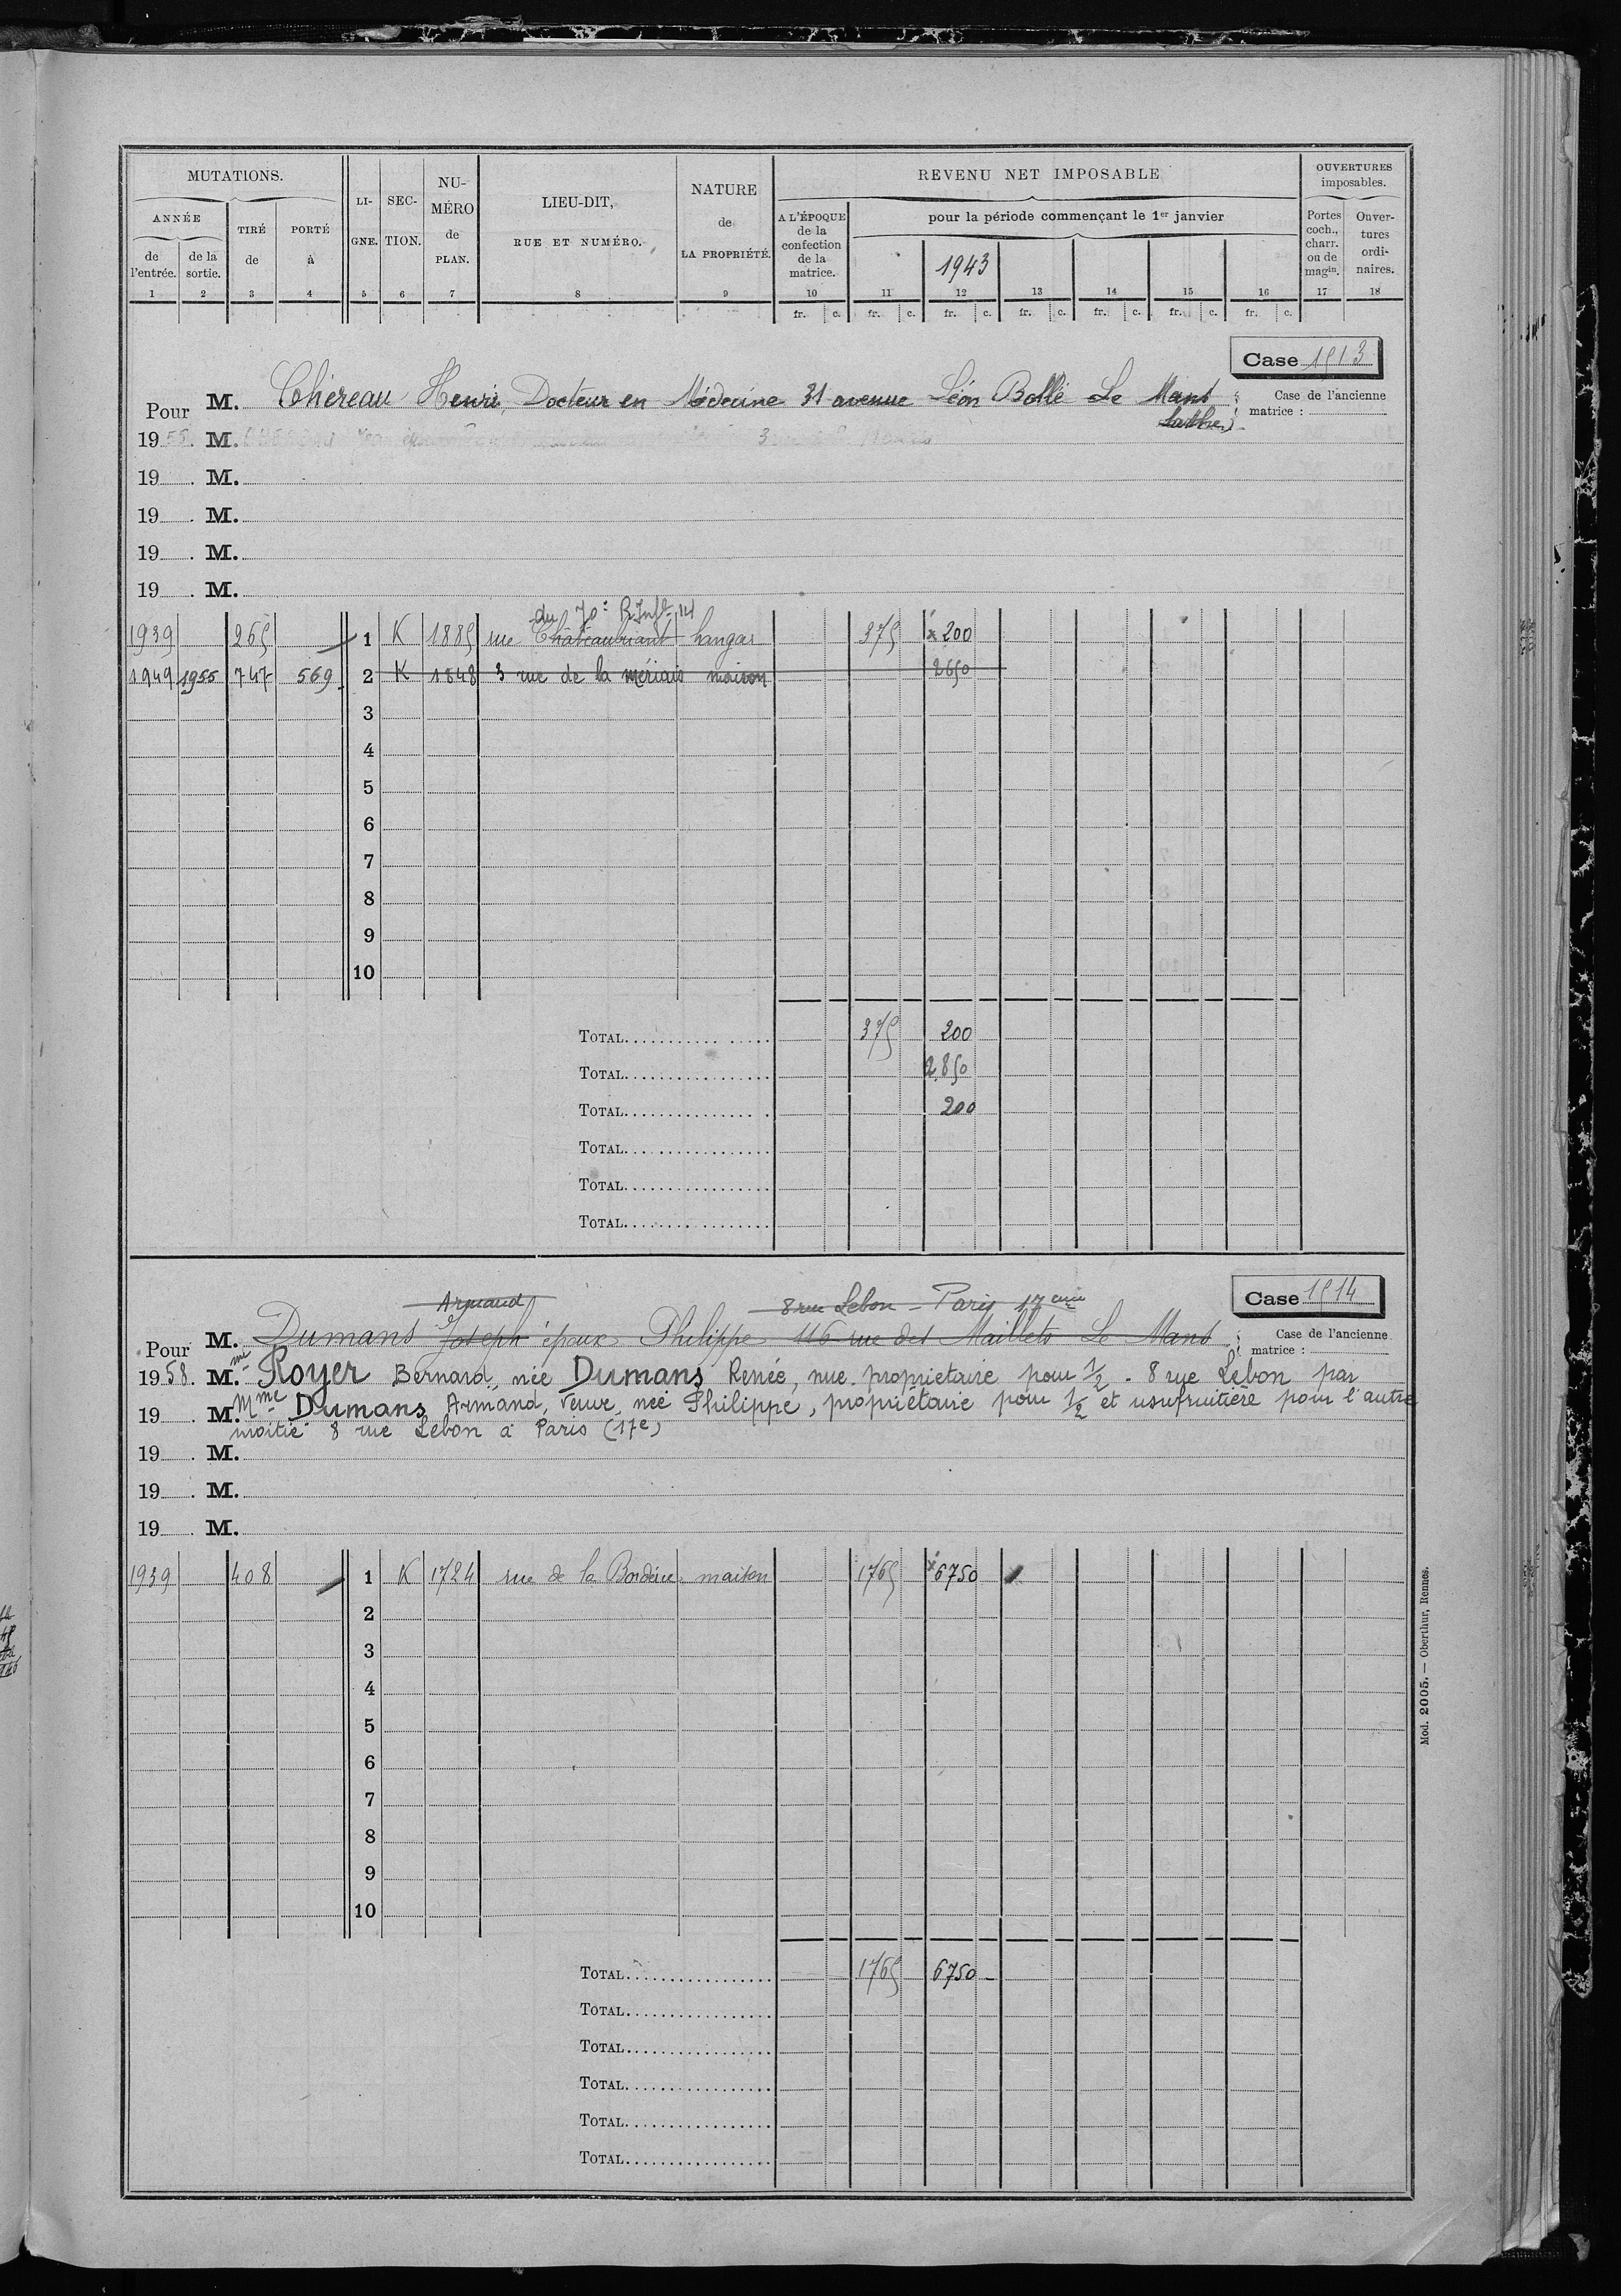 MUTATIONS. LI- SEC- NU- LIEU-DIT, NATURE REVENU NET IMPOSABLE OUVERTURES
imposables.
ANNÉE TIRÉ PORTÉ GNE. TION. MÉRO RUE ET NUMÉRO. de A L'ÉPOQUE pour la période commençant le 1er janvier Portes Ouver-
de de la de à de LA PROPRIÉTÉ. de la coch., tures
l'entrée. sortie. PLAN. confection charr. ordi-
de la 1943 ou de naires.
matrice. magin.
1 2 3 4 5 6 7 8 9 10 11 12 13 14 15 16 17 18
fr. c. fr. c. fr. c. fr. c. fr. c. fr. c. fr. c.
Case 1513
Pour M. Chéreau Henri, Docteur en Médecine 31 avenue Léon Bollé Le Mans Case de l'ancienne
(Sarthe) matrice :
1955. M.
19 . M.
19 . M.
19 . M.
19 . M.
du 70e R. Inf. 14
1939 265 1 K 1885 rue Châteaubriant hangar 375 x 200
1949 1955 747 569 2 K 1848 3 rue de la mériais maison 2650
3
4
5
6
7
8
9
10
TOTAL 375 200
TOTAL 2.850
TOTAL 200
TOTAL
TOTAL
TOTAL
Case 1514
Armand 8 rue Lebon - Paris 17eme
Pour M. Dumans Joseph époux Philippe 116 rue des Maillets Le Mans Case de l'ancienne
matrice :
1958. Mme Royer Bernard, née Dumans Renée, nue propriétaire pour 1/2 - 8 rue Lebon par
19 . M. Mme Dumans Armand, Veuve, née Philippe, propriétaire pour 1/2 et usufruitière pour l'autre
moitié 8 rue Lebon à Paris (17e)
19 . M.
19 . M.
19 . M.
1939 408 1 K 1724 rue de la Borderie maison 1765 x 6750
2
3
4
5
6
7
8
9
10
TOTAL 1765 6750
TOTAL
TOTAL
TOTAL
TOTAL
TOTAL
Mod. 2005. — Oberthur, Rennes.